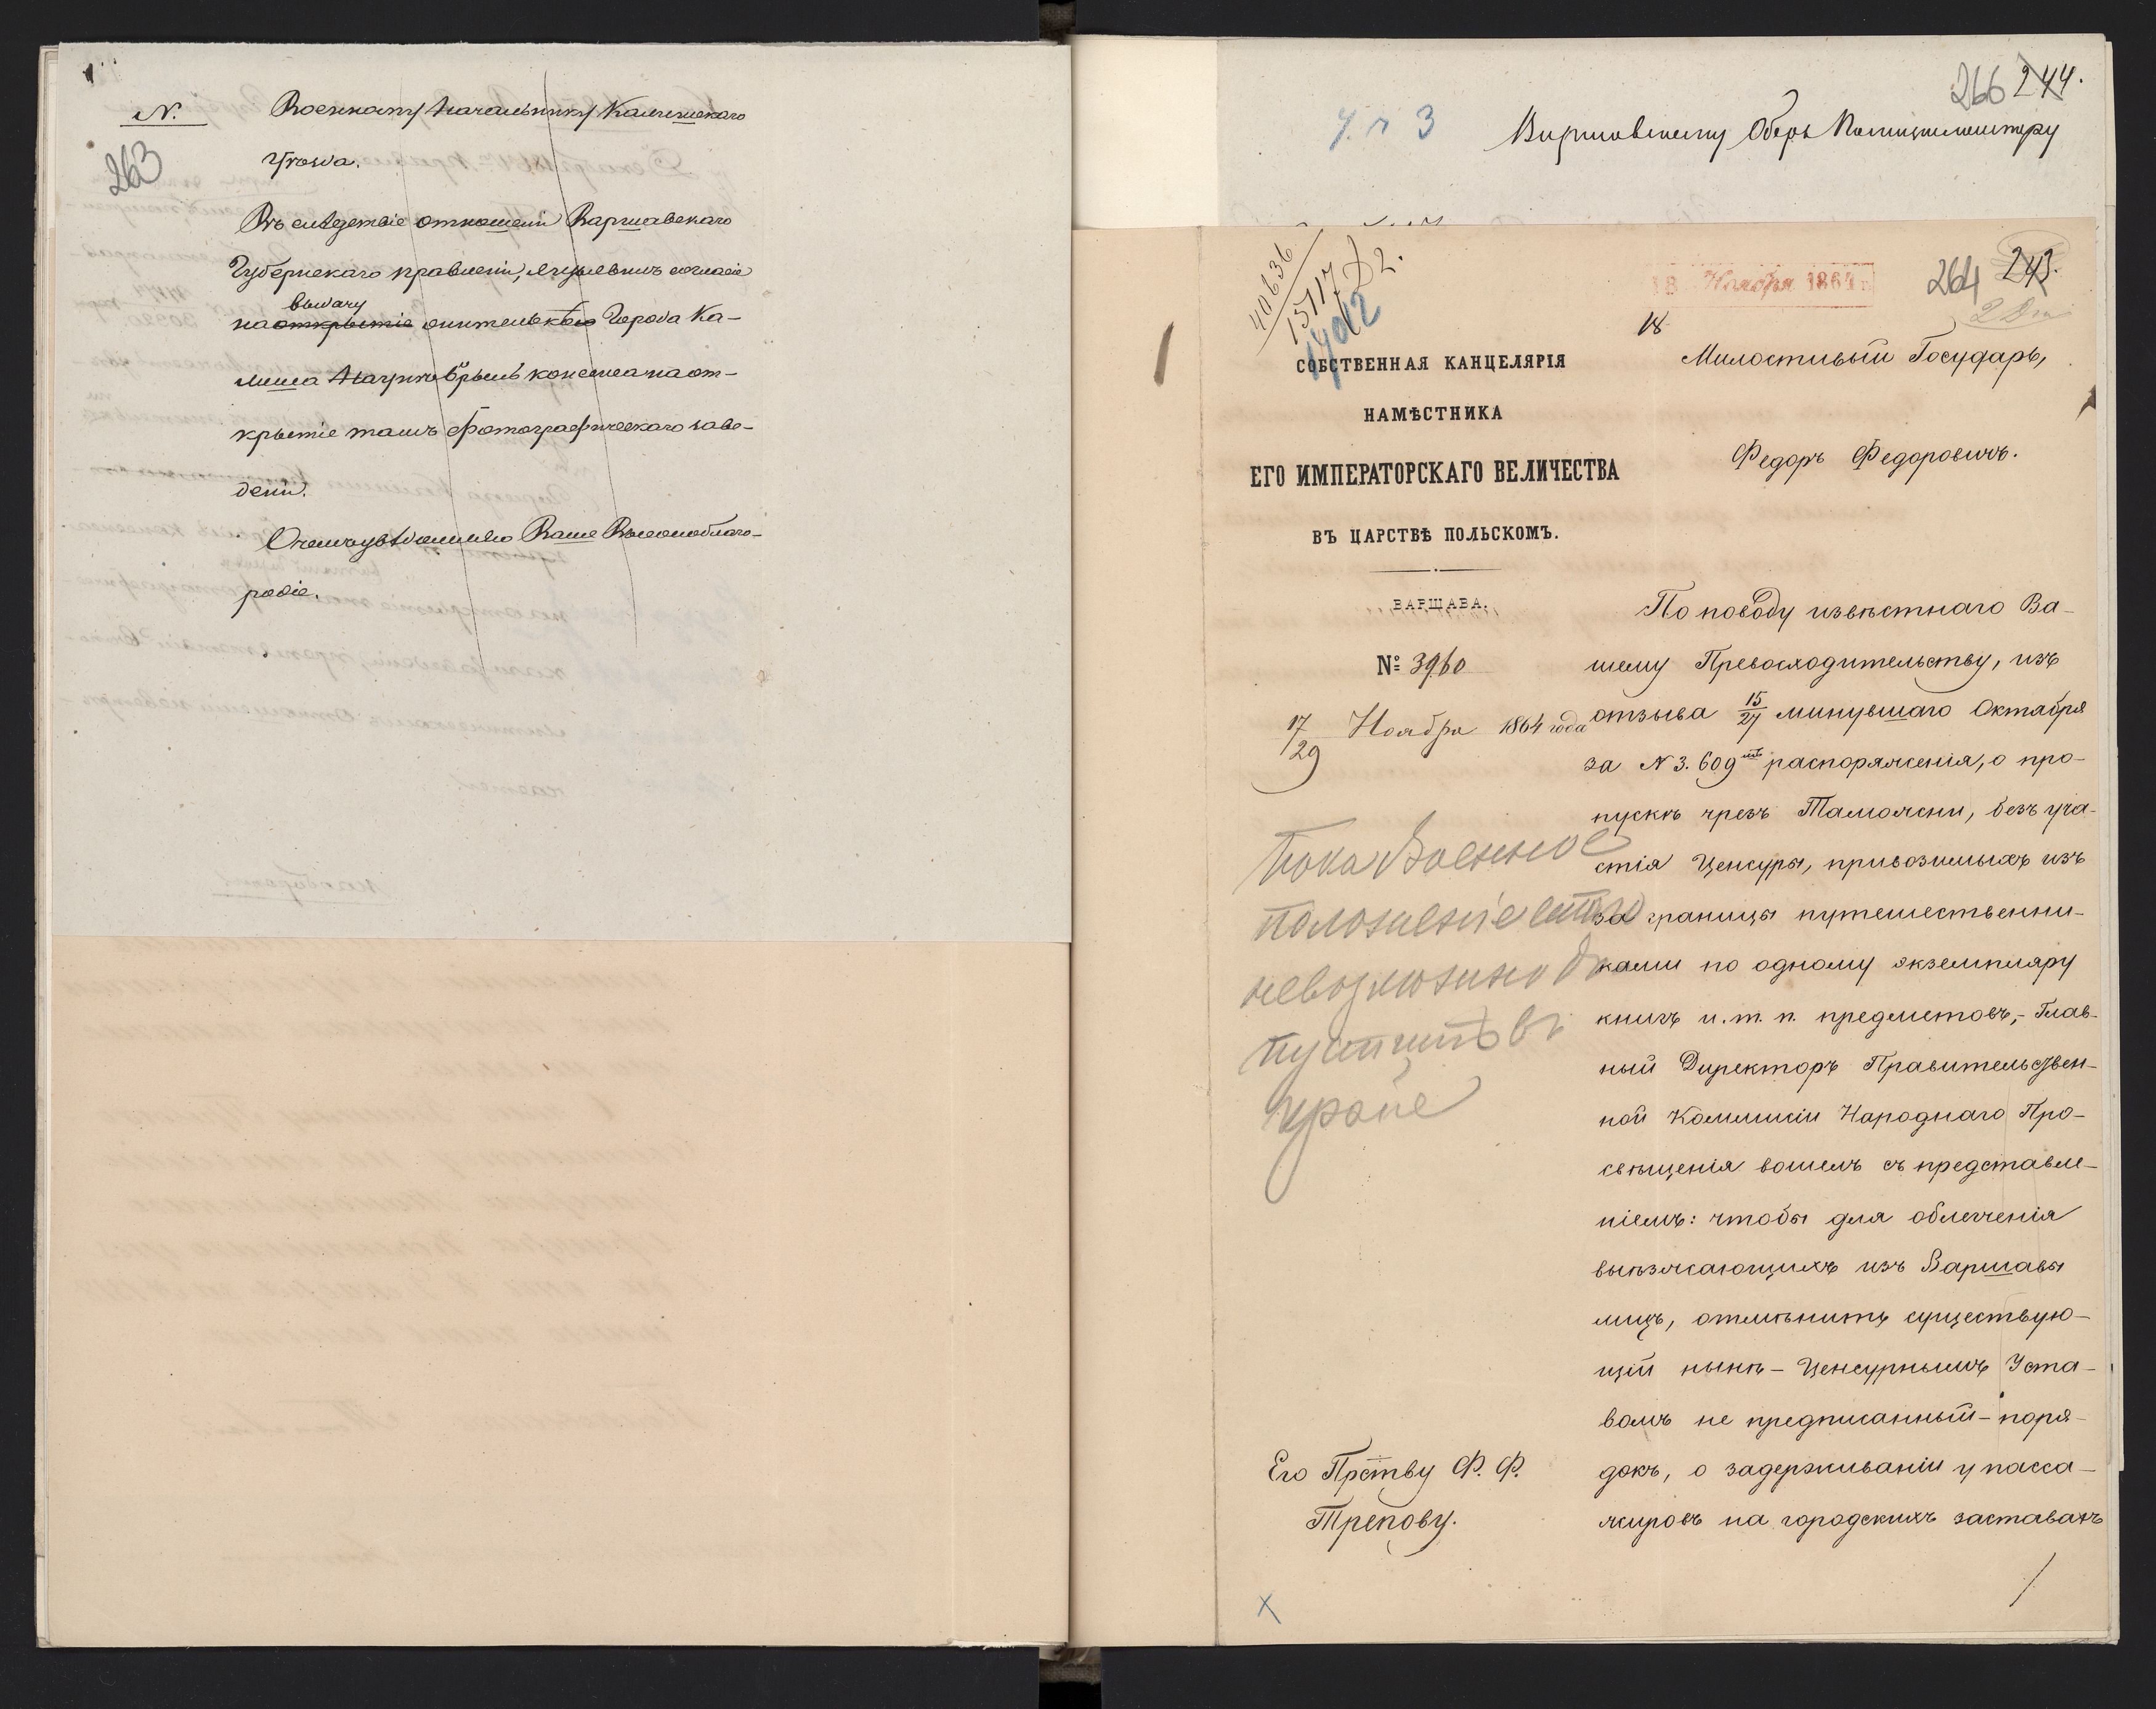 N.
263
Военному Начальнику Калишскаго
Уѣзда.
Въ слѣдствіе отношенія Варшавскаго
Губернскаго правленія, я изъявилъ согласіе
выдачу
на открытіе жителькѣ города Ка-
лиша консенса на от-
крытіе тамъ фотографическаго заве-
денія.
О чемъ увѣдомляю Ваше Высокоблаго-
родіе.
266 244.
3
Варшавскому Оберъ Полицмейстеру
40636
15717
2.
18 Ноября 1864 г.
264 243.
18
СОБСТВЕННАЯ КАНЦЕЛЯРІЯ
НАМѢСТНИКА
ЕГО ИМПЕРАТОРСКАГО ВЕЛИЧЕСТВА
ВЪ ЦАРСТВѢ ПОЛЬСКОМЪ.
ВАРШАВА.
№ 3960
17/29 Ноября 1864 года
Пока Военное
положеніе
невозможно до
пустить въ
краѣ
Его Прству Ф. Ф.
Трепову.
Милостивый Государь,
Федоръ Федоровичъ.
По поводу извѣстнаго Ва-
шему Превосходительству, изъ
отзыва 15/27 минувшаго Октября
за N 3.609мъ распоряженія, о про-
пускѣ чрезъ Таможни, безъ уча-
стія Ценсуры, привозимыхъ изъ
за границы путешественни-
ками по одному экземпляру
книгъ и. т. п. предметовъ,- Глав-
ный Директоръ Правительствен-
ной Коммисіи Народнаго Про-
свѣщенія вошелъ съ представле-
ніемъ: чтобы для облегченія
выѣзжающихъ изъ Варшавы
лицъ, отмѣнить существую-
щій нынѣ - Ценсурнымъ Уста-
вомъ не предписанный - поря-
докъ, о задерживаніи у пасса-
жировъ на городскихъ заставахъ